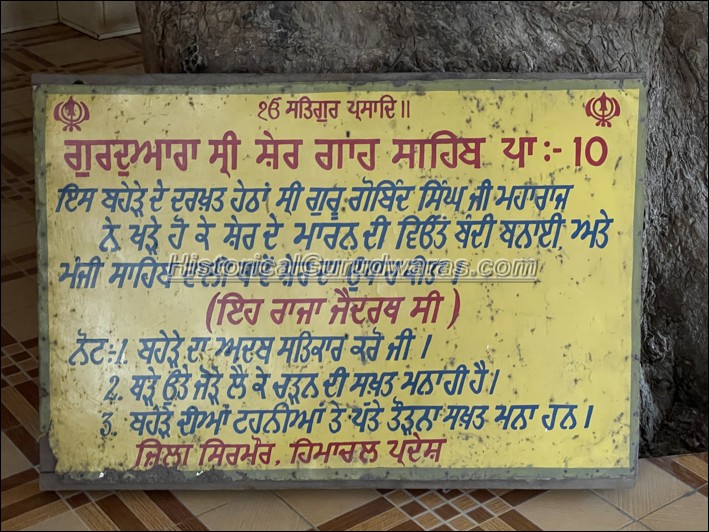 ੴ ਸਤਿਗੁਰ ਪ੍ਰਸਾਦਿ॥
ਗੁਰਦੁਆਰਾ ਸ੍ਰੀ ਸ਼ੇਰ ਗਾਹ ਸਾਹਿਬ ਪਾ:- 10
ਇਸ ਬਹੇੜੇ ਦੇ ਦਰਖ਼ਤ ਹੇਠਾਂ ਸ੍ਰੀ ਗੁਰੂ ਗੋਬਿੰਦ ਸਿੰਘ ਜੀ ਮਹਾਰਾਜ
ਨੇ ਖੜੇ ਹੋ ਕੇ ਸ਼ੇਰ ਦੇ ਮਾਰਨ ਦੀ ਵਿਉਂਤ ਬੰਦੀ ਬਨਾਈ, ਅਤੇ
ਮੰਜੀ ਸਾਹਿਬ ਸ਼ੇਰ ਦਾ
HistoricalGurudwaras.com
(ਇਹ ਰਾਜਾ ਜੈਦਰਥ ਸੀ)
ਨੋਟ:-1. ਬਹੇੜੇ ਦਾ ਅਦਬ ਸਤਿਕਾਰ ਕਰੋ ਜੀ।
2. ਥੜੇ ਉਤੇ ਜੋੜੇ ਲੈ ਕੇ ਚੜ੍ਹਨ ਦੀ ਸਖ਼ਤ ਮਨਾਹੀ ਹੈ।
3. ਬਹੇੜੇ ਦੀਆਂ ਟਹਨੀਆਂ ਤੇ ਪੱਤੇ ਤੋੜਨਾ ਸਖ਼ਤ ਮਨਾ ਹਨ।
ਜ਼ਿਲਾ ਸਿਰਮੌਰ, ਹਿਮਾਚਲ ਪ੍ਰਦੇਸ਼